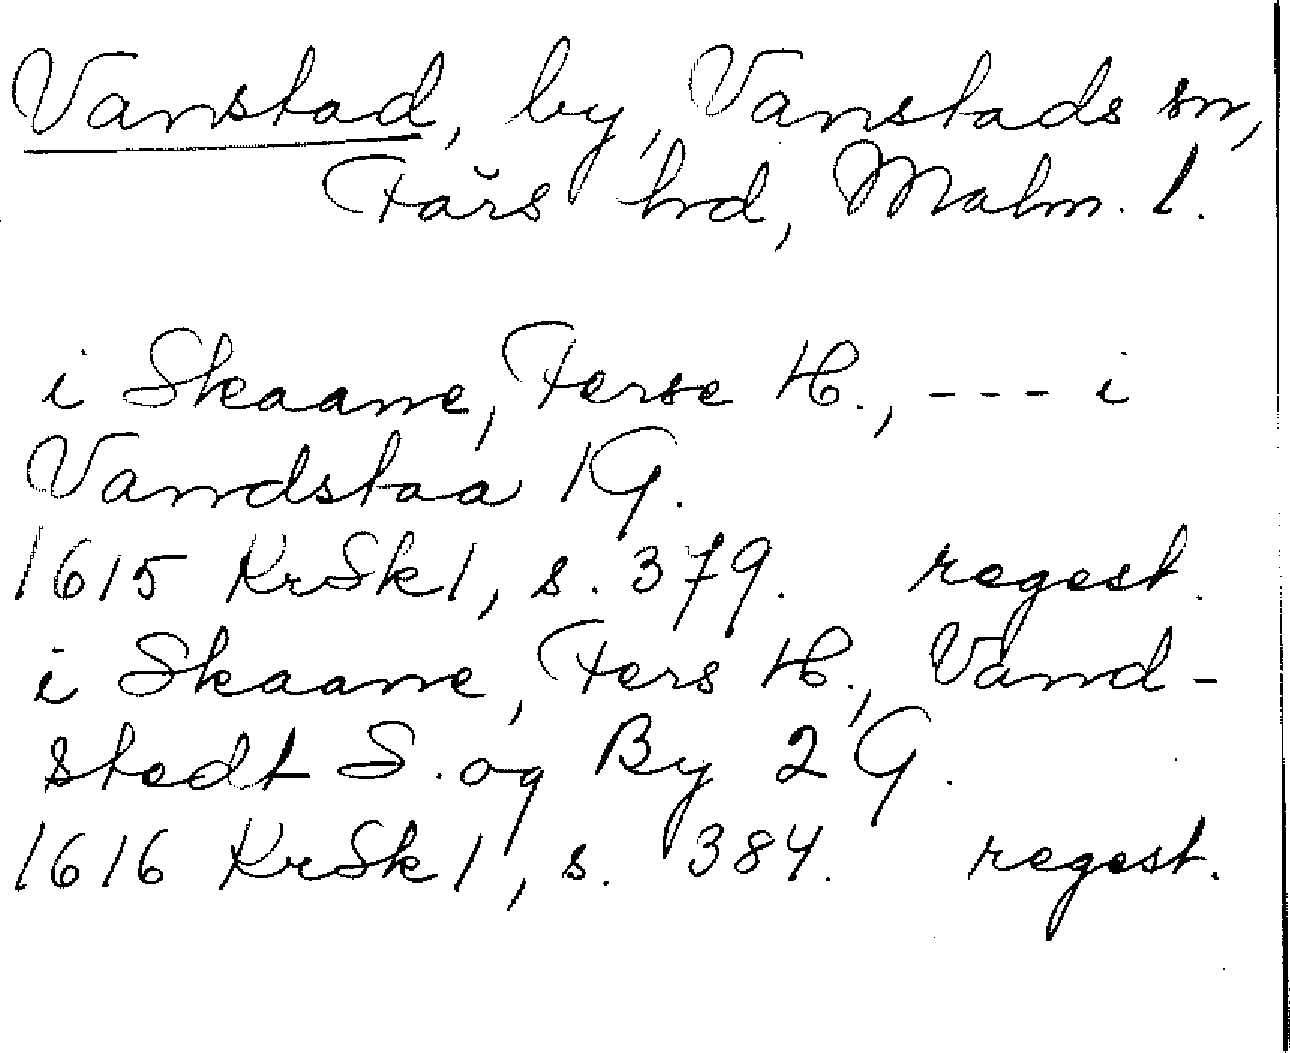 Vanstad, by, Vanstads sn,
Färs hd, Malm. l.
i Skaane, Ferse H., --- i
Vandstaa 1 G.
1615 KrSk 1, s. 379. regest.
i Skaane, Fers H., Vand-
stedt S. og By 2 G.
1616 KrSk 1, s. 384. regest.